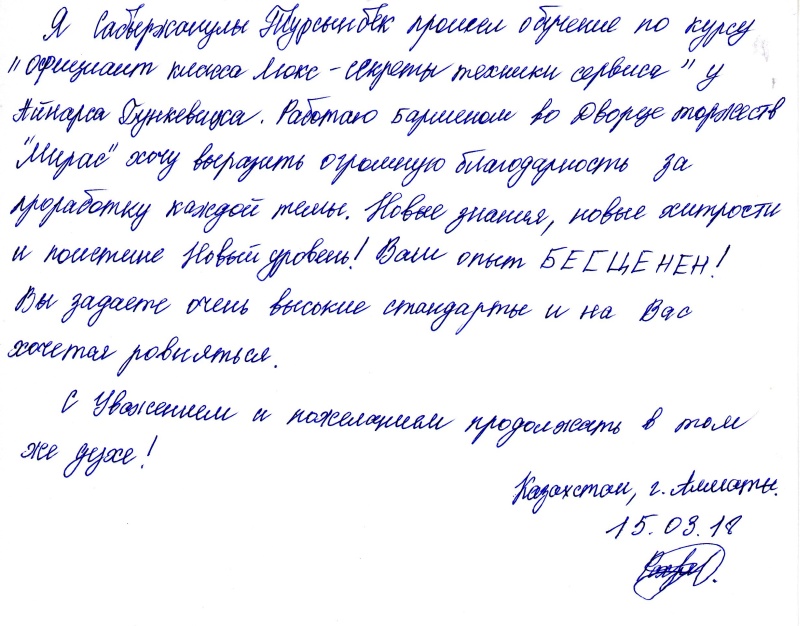 Я Сабыржанулы Турсынбек прошел обучение по курсу
"официант класса Люкс - секреты техники сервиса" у
Айнарса Гункевица. Работаю барменом во Дворце торжеств
"Мирас" хочу выразить огромную благодарность за
проработку каждой темы. Новые знания, новые хитрости
и поистине Новый уровень! Ваш опыт БЕСЦЕНЕН!
Вы задаете очень высокие стандарты и на Вас
хочется ровняться.
С Уважением и пожеланием продолжать в том
же духе!
Казахстан, г. Алматы.
15.03.18